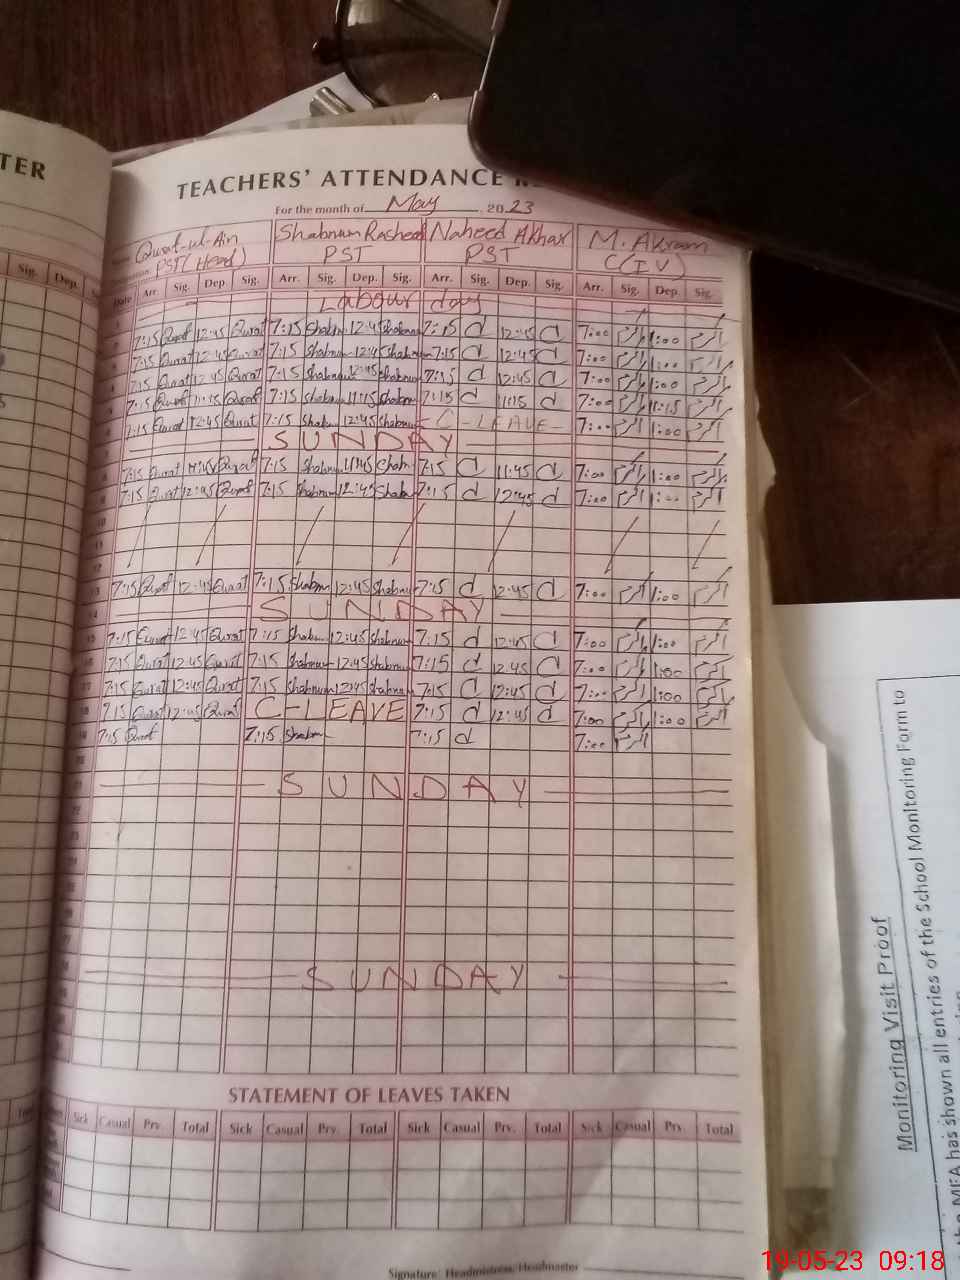 TER
TEACHERS' ATTENDANCE
For the month of May 2023
Qurat-ul-Ain Shabnum Rasheed Naheed Akhar M. Akram
PST (Head) PST PST C(IV)
Sig. Dep. Date Arr. Sig. Dep. Sig. Arr. Sig. Dep. Sig. Arr. Sig. Dep. Sig. Arr. Sig. Dep. Sig.
Labour day
7:15 Qurat 12:45 Qurat 7:15 Shabnum 12:45 Shabnum 7:15 d 12:45 d 7:00 اکرم 1:00 اکرم
7:15 Qurat 12:45 Qurat 7:15 Shabnum 12:45 Shabnum 7:15 d 12:45 d 7:00 اکرم 1:00 اکرم
7:15 Qurat 12:45 Qurat 7:15 Shabnum 12:45 Shabnum 7:15 d 12:45 d 7:00 اکرم 1:00 اکرم
7:15 Qurat 11:15 Qurat 7:15 Shabnum 11:15 Shabnum 7:15 d 11:15 d 7:00 اکرم 11:15 اکرم
7:15 Qurat 12:45 Qurat 7:15 Shabnum 12:45 Shabnum C-LEAVE- 7:00 اکرم 1:00 اکرم
SUNDAY
7:15 Qurat Qurat 7:15 Shabnum 11:45 Shabn 7:15 d 11:45 d 7:00 اکرم 1:00 اکرم
7:15 Qurat 12:45 Qurat 7:15 Shabnum 12:45 Shabnum 7:15 d 12:45 d 7:00 اکرم 1:00 اکرم
7:15 Qurat 12:45 Qurat 7:15 Shabnum 12:45 Shabnum 7:15 d 12:45 d 7:00 اکرم 1:00 اکرم
SUNDAY
7:15 Qurat 12:45 Qurat 7:15 Shabnum 12:45 Shabnum 7:15 d 12:45 d 7:00 اکرم 1:00 اکرم
7:15 Qurat 12:45 Qurat 7:15 Shabnum 12:45 Shabnum 7:15 d 12:45 d 7:00 اکرم 1:00 اکرم
7:15 Qurat 12:45 Qurat 7:15 Shabnum 12:45 Shabnum 7:15 d 12:45 d 7:00 اکرم 1:00 اکرم
7:15 Qurat 12:45 Qurat C-LEAVE 7:15 d 12:45 d 7:00 اکرم 1:00 اکرم
7:15 Qurat 7:15 Shabnum 7:15 d 7:00 اکرم
SUNDAY
SUNDAY
STATEMENT OF LEAVES TAKEN
Sick Casual Prv. Total Sick Casual Prv. Total Sick Casual Prv. Total Sick Casual Prv. Total
Signature: Headmistress/Headmaster
Monitoring Visit Proof
the MEA has shown all entries of the School Monitoring Form to
19-05-23 09:18